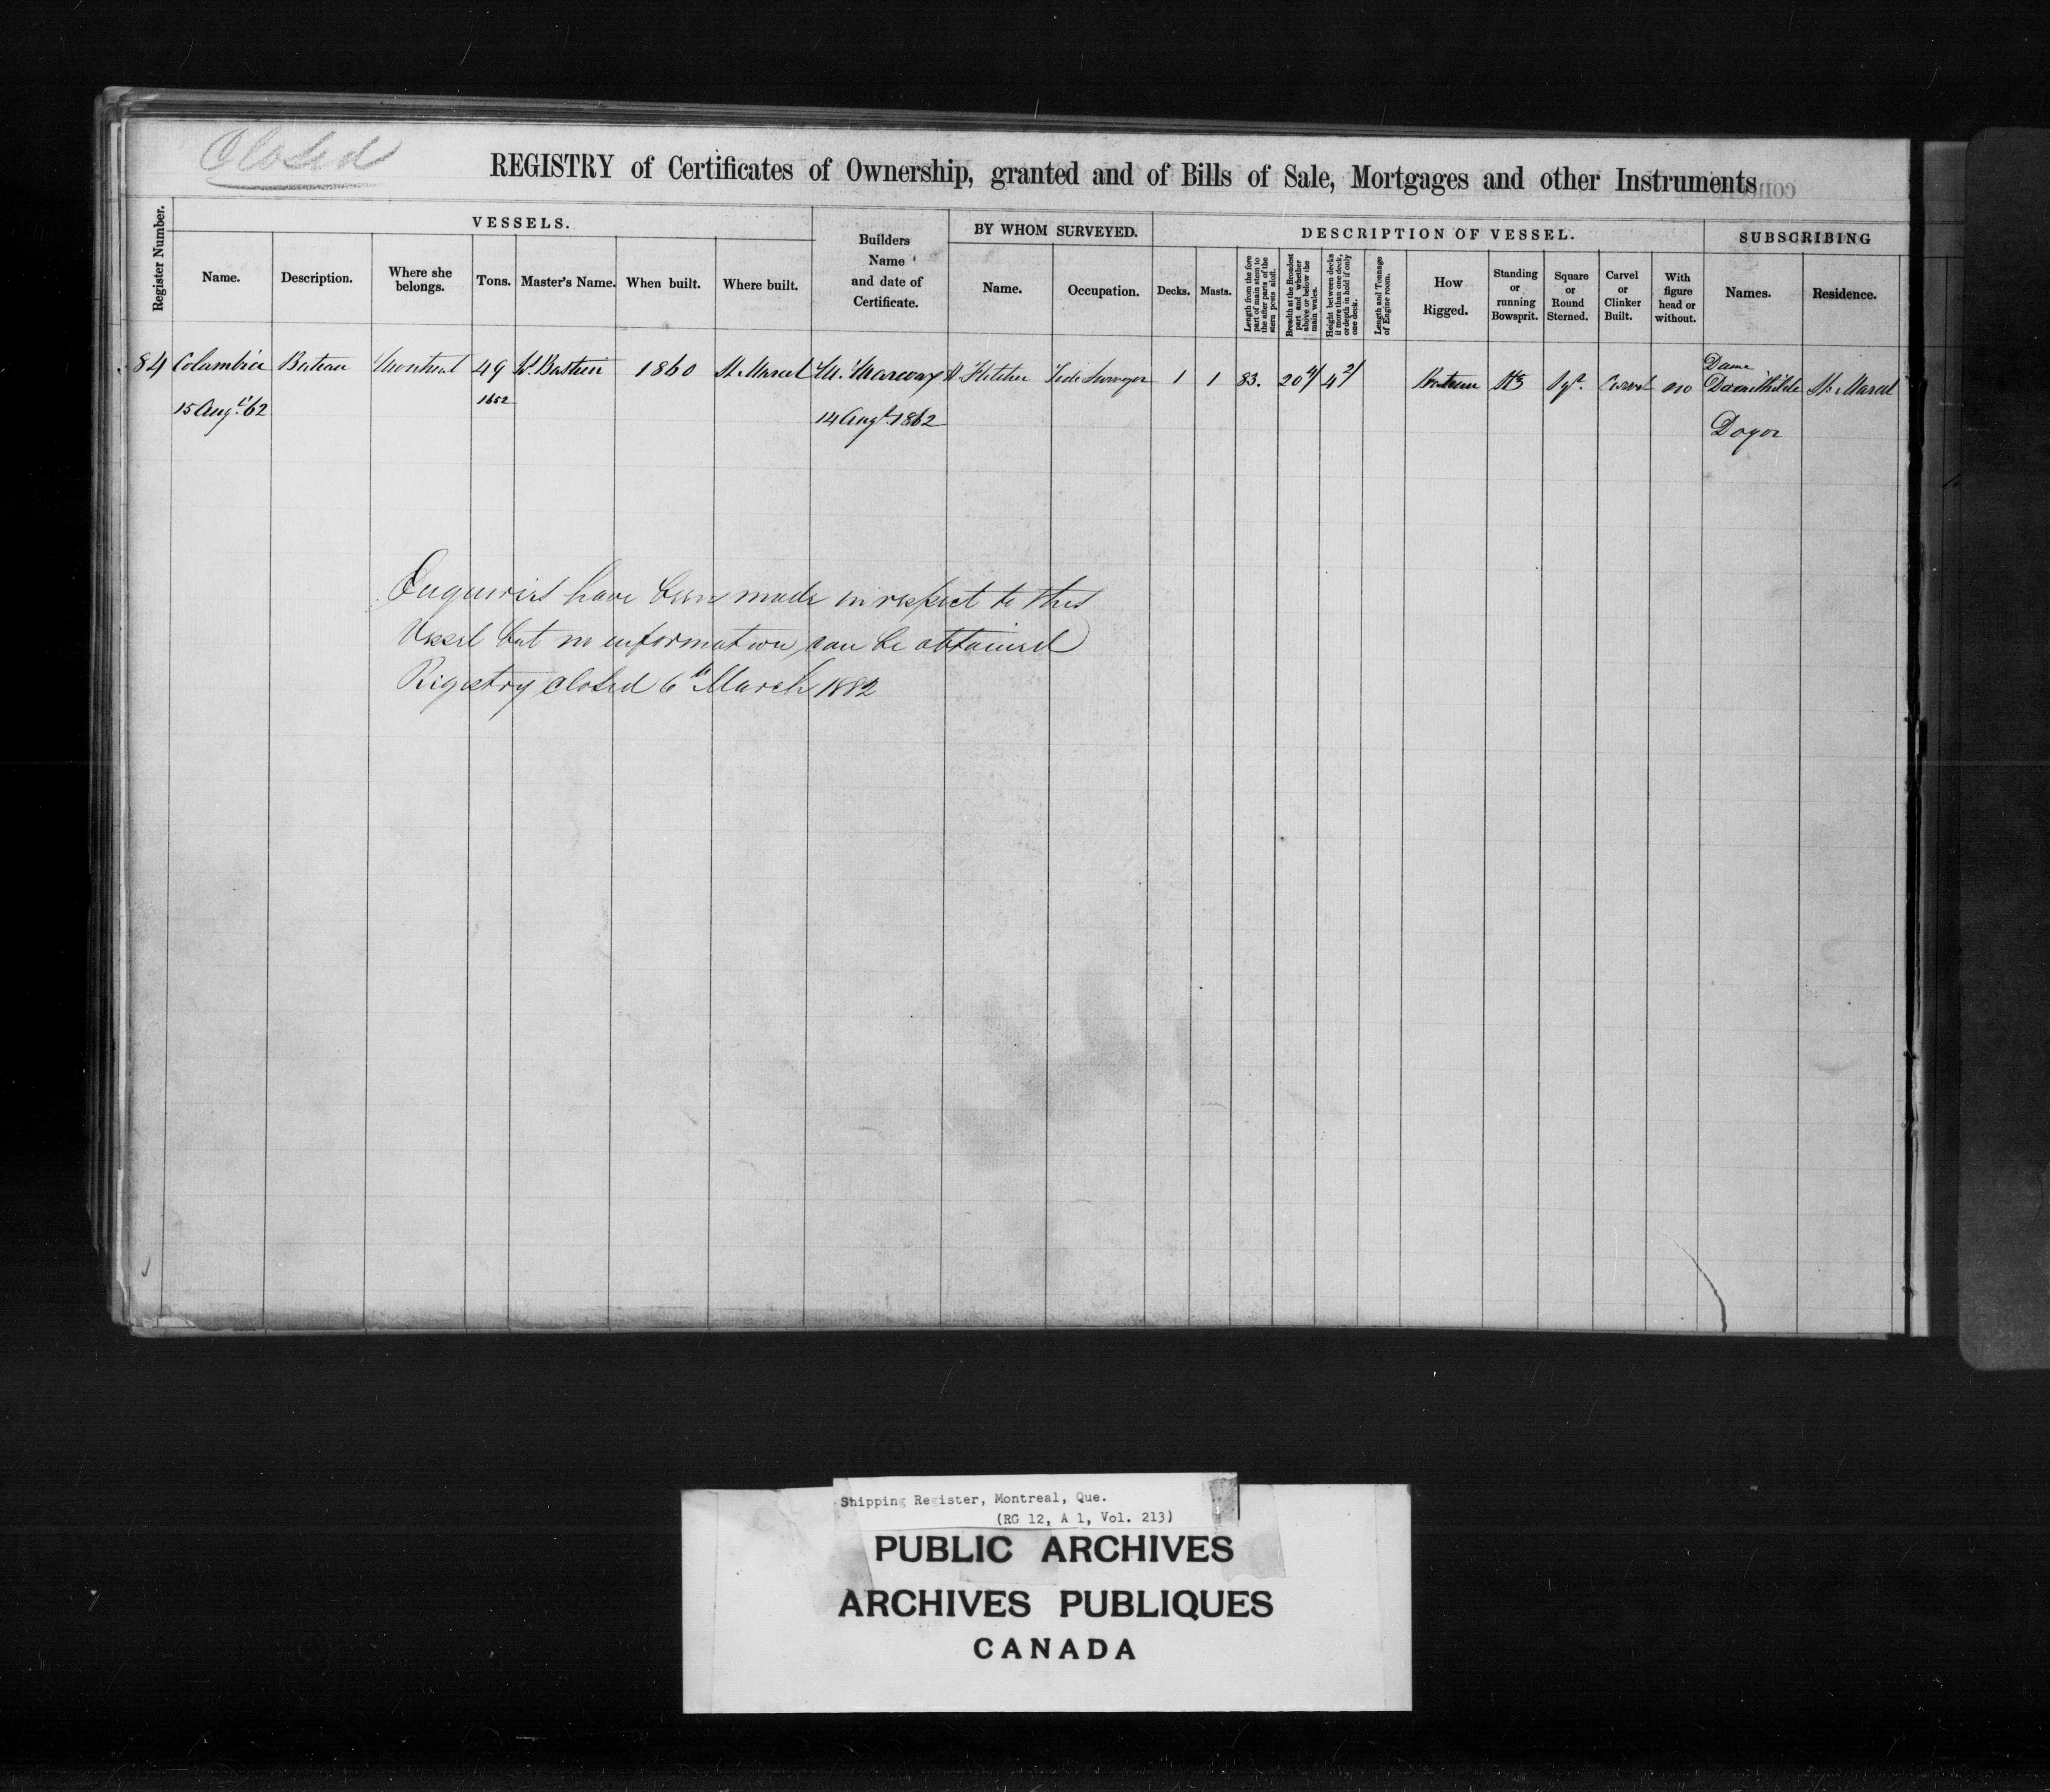 Closed
REGISTRY of Certificates of Ownership, granted and of Bills of Sale, Mortgages and other Instruments
Register Number.
VESSELS.
Name.
Description.
Where she
belongs.
Tons.
Master's Name.
When built.
Where built.
Builders
Name
and date of
Certificate.
BY WHOM SURVEYED.
Name.
Occupation.
DESCRIPTION OF VESSEL.
Decks.
Masts.
Length from the fore
part of main stem to
the after parts of the
stern posts aloft.
Breadth at the Broadest
part and whether
above or below the
main wales.
Height between decks
if more than one deck,
or depth in hold if only
one deck.
Length and Tonnage
of Engine room.
How
Rigged.
Standing
or
running
Bowsprit.
Square
or
Round
Sterned.
Carvel
or
Clinker
Built.
With
figure
head or
without.
SUBSCRIBING
Names.
Residence.
84 Columbia Bateau Montreal 49 Bastien 1860 St. Marcel M. H. Fletcher Tide Surveyor 1 1 83. 20 4/ 4 2/ Bateau Stg Sqr. Carvel no Dame St. Marcel
15 Augt. '62
1652
14 Augt. 1862
Enquiries have been made in respect to this
Vessel but no information can be obtained
Registry closed 6th March 1882
Shipping Register, Montreal, Que.
(RG 12, A 1, Vol. 213)
PUBLIC ARCHIVES
ARCHIVES PUBLIQUES
CANADA